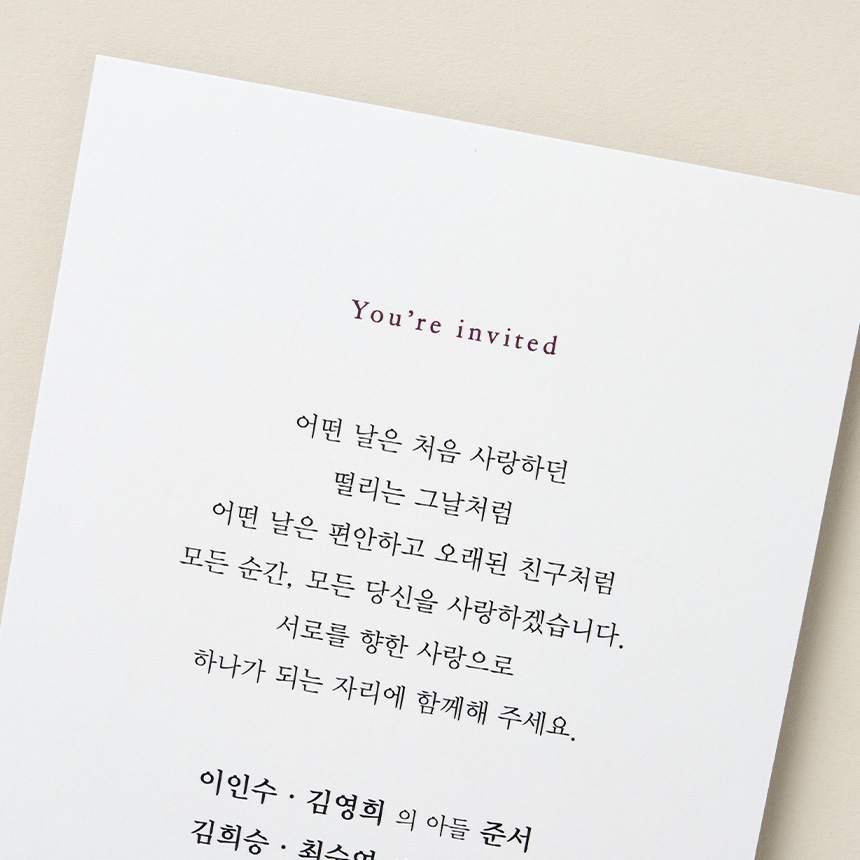 You're invited
어떤 날은 처음 사랑하던
떨리는 그날처럼
어떤 날은 편안하고 오래된 친구처럼
모든 순간, 모든 당신을 사랑하겠습니다.
서로를 향한 사랑으로
하나가 되는 자리에 함께해 주세요.
이인수 · 김영희 의 아들 준서
김희승 ·